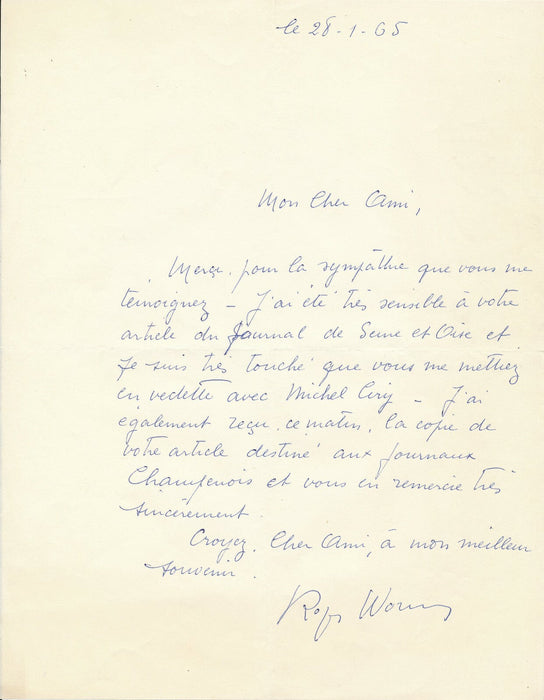 le 28-1-65
Mon Cher Ami,
Merci pour la sympathie que vous me
témoignez - J'ai été très sensible à votre
article du Journal de Seine et Oise et
je suis très touché que vous me mettiez
en vedette avec Michel Ciry - J'ai
également reçu, ce matin, la copie de
votre article destiné aux journaux
Champenois et vous en remercie très
sincèrement.
Croyez, Cher Ami, à mon meilleur
souvenir.
Roger Worms